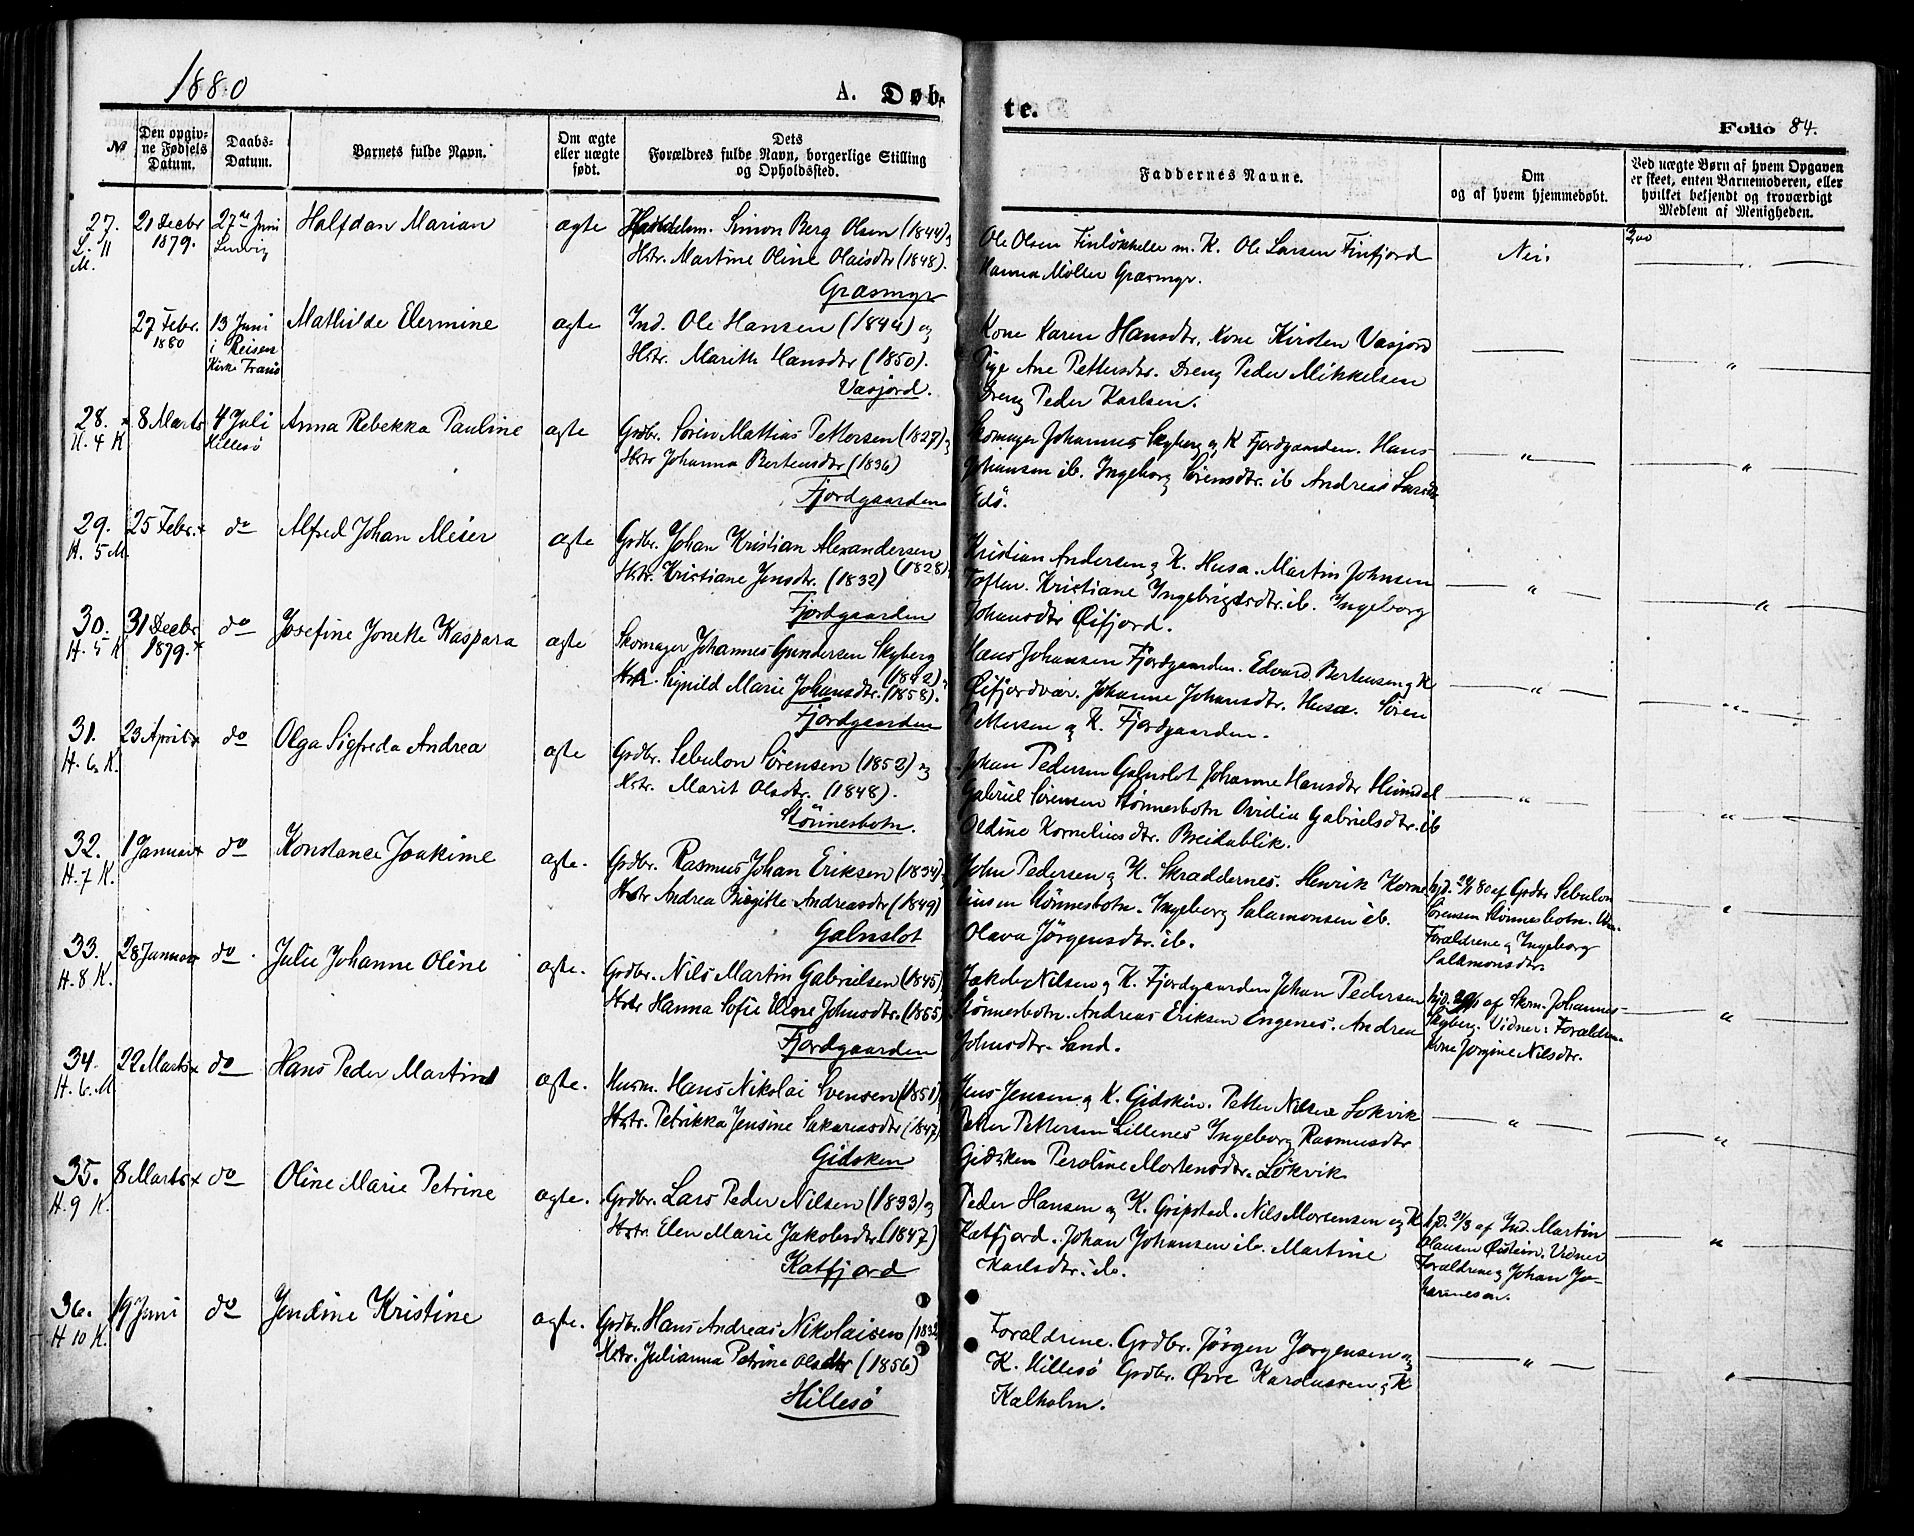 1880
A. Døb-
te.
Folio 84.
№
Den opgiv-
ne Fødsels
Datum.
Daabs-
Datum.
Barnets fulde Navn.
Om ægte
eller uægte
født.
Dets
Forældres fulde Navn, borgerlige Stilling
og Opholdssted.
Faddernes Navne.
Om
og af hvem hjemmedøbt.
Ved uægte Børn af hvem Opgaven
er skeet, enten Barnemoderen, eller
hvilket bekjendt og troværdigt
Medlem af Menigheden.
27.
L. 11
M.
21 Decbr
1879.
27de Juni
Lenvig
Halfdan Marian
ægte
Handelsm. Simon Berg Olsen (1844) og
Hstr. Martine Oline Olaisdtr (1848).
Græsmyr
Ole Olsen Finlökkelle m. K. Ole Larsen Finfjord
Hanna Møller Græsmyr.
Nei.
27 Febr.
1880
13 Juni
i Reisen
Kirke Tranö
Mathilde Elermine
ægte
Ind. Ole Hansen (1844) og
Hstr. Marith Hansdtr (1850).
Vasjord.
Kone Karen Hansdtr, Kone Kirsten Vasjord
Pige Ane Pettersdtr. Dreng Peder Mikkelsen
Dreng Peder Karlsen.
28.
H. 4 K
8 Marts
4 Juli
Hillesø
Anna Rebekka Pauline
ægte
Grdbr. Sören Mattias Pettersen (1827) og
Hstr Johanna Bertensdtr (1836)
Fjordgaarden
Skomager Johannes Skyberg og K Fjordgaarden. Hans
Johansen ib. Ingeborg Sörensdtr. ib Andreas
Edö.
29.
H. 5 M.
25 Febr.
do
Alfred Johan Meier
ægte
Grdbr. Johan Kristian Alexandersen
(1828)
Hstr. Kristiane Jensdtr. (1832)
Fjordgaarden
Kristian Andersen og K. Husa. Martin Johnsen
Toften. Kristiane Ingebrigtsdtr. ib. Ingeborg
Johansdtr Øifjord.
30.
H. 5 K
31 Decbr
1879.
do
Josefine Jonette Kaspara
ægte
Skomager Johannes Gundersen Skyberg
(1842)
Hstr. Signild Marie Johansdtr. (1858).
Fjordgaarden
Hans Johansen Fjordgaarden. Edvard Bertensen og K
Øifjordvær. Johanne Johansdtr. Husa. Sören
Pettersen og K. Fjordgaarden.
31.
H. 6 K.
23 April
do
Olga Sigfreda Andrea
ægte
Grdbr. Sebulon Sörensen (1852) og
Hstr. Marit Olsdtr. (1848).
Stönnesbotn.
Johan Pedersen Galnslot Johanne Hansdtr Heimdal
Gabriel Sörensen Stönnesbotn Ovidia Gabrielsdtr. ib
Oldine Korneliusdtr. Breidablik.
32.
H. 7 K.
1 Januar
do
Konstance Joakime
ægte.
Grdbr. Rasmus Johan Eriksen (1834)
Hstr Andrea Birgitte Andreasdtr (1849)
Galnslot
John Pedersen og K. Skraddernes. Henrik Korne
liusen Stönnesbotn. Ingeborg Salamonsen ib.
Olava Jörgensdtr. ib.
80 af Grdbr Sebulon
Sörensen Stönnesbotn.
Forældrene og Ingeborg
Salamonsdtr.
33.
H. 8 K.
28 Januar
do
Julie Johanne Oline
ægte.
Grdbr. Nils Martin Gabrielsen (1845)
Hstr Hanna Sofie Elene Johnsdtr. (1855)
Fjordgaarden
Jakob Nilsen og K. Fjordgaarden Johan Pedersen
Stönnesbotn. Andreas Eriksen Engenes. Andrea
Johnsdtr. Sand.
af Skom. Johannes
Skyberg. Vidner: Forældr.
Kone Jörgine Nilsdtr.
34.
H. 6. M
22 Marts
do
Hans Peder Martin
ægte.
Husm. Hans Nikolai Svensen (1851)
Hstr. Petrikka Jensine Sakariasdtr (1847)
Gidsken
Jens Jensen og K. Gidsken. Petter Nilsen Lökvik
Petter Pettersen Lillenes Ingeborg Rasmusdtr
Gidsken Peroline Mortensdtr. Lökvik
35.
H. 9 K.
8 Marts
do
Oline Marie Petrine
ægte.
Grdbr. Lars Peder Nilsen (1833) og
Hstr. Elen Marie Jakobsdtr (1847)
Katfjord
Peder Hansen og K. Gripstad. Nils Mortensen og K
Katfjord. Johan Johansen ib. Martine
Karlsdtr. ib.
af Ind. Martin
Olausen Øistein. Vidner
Forældrene og Johan Jo-
hannesen.
36.
H 10 K.
19 Juni
do
Jendine Kristine
ægte.
Grdbr. Hans Andreas Nikolaisen (1832
Hstr. Julianna Petrine Olsdtr (1856)
Hillesö
Forældrene. Grdbr. Jörgen Jörgensen og
K. Hillesö Grdbr. Øvre og K
Kalholm.